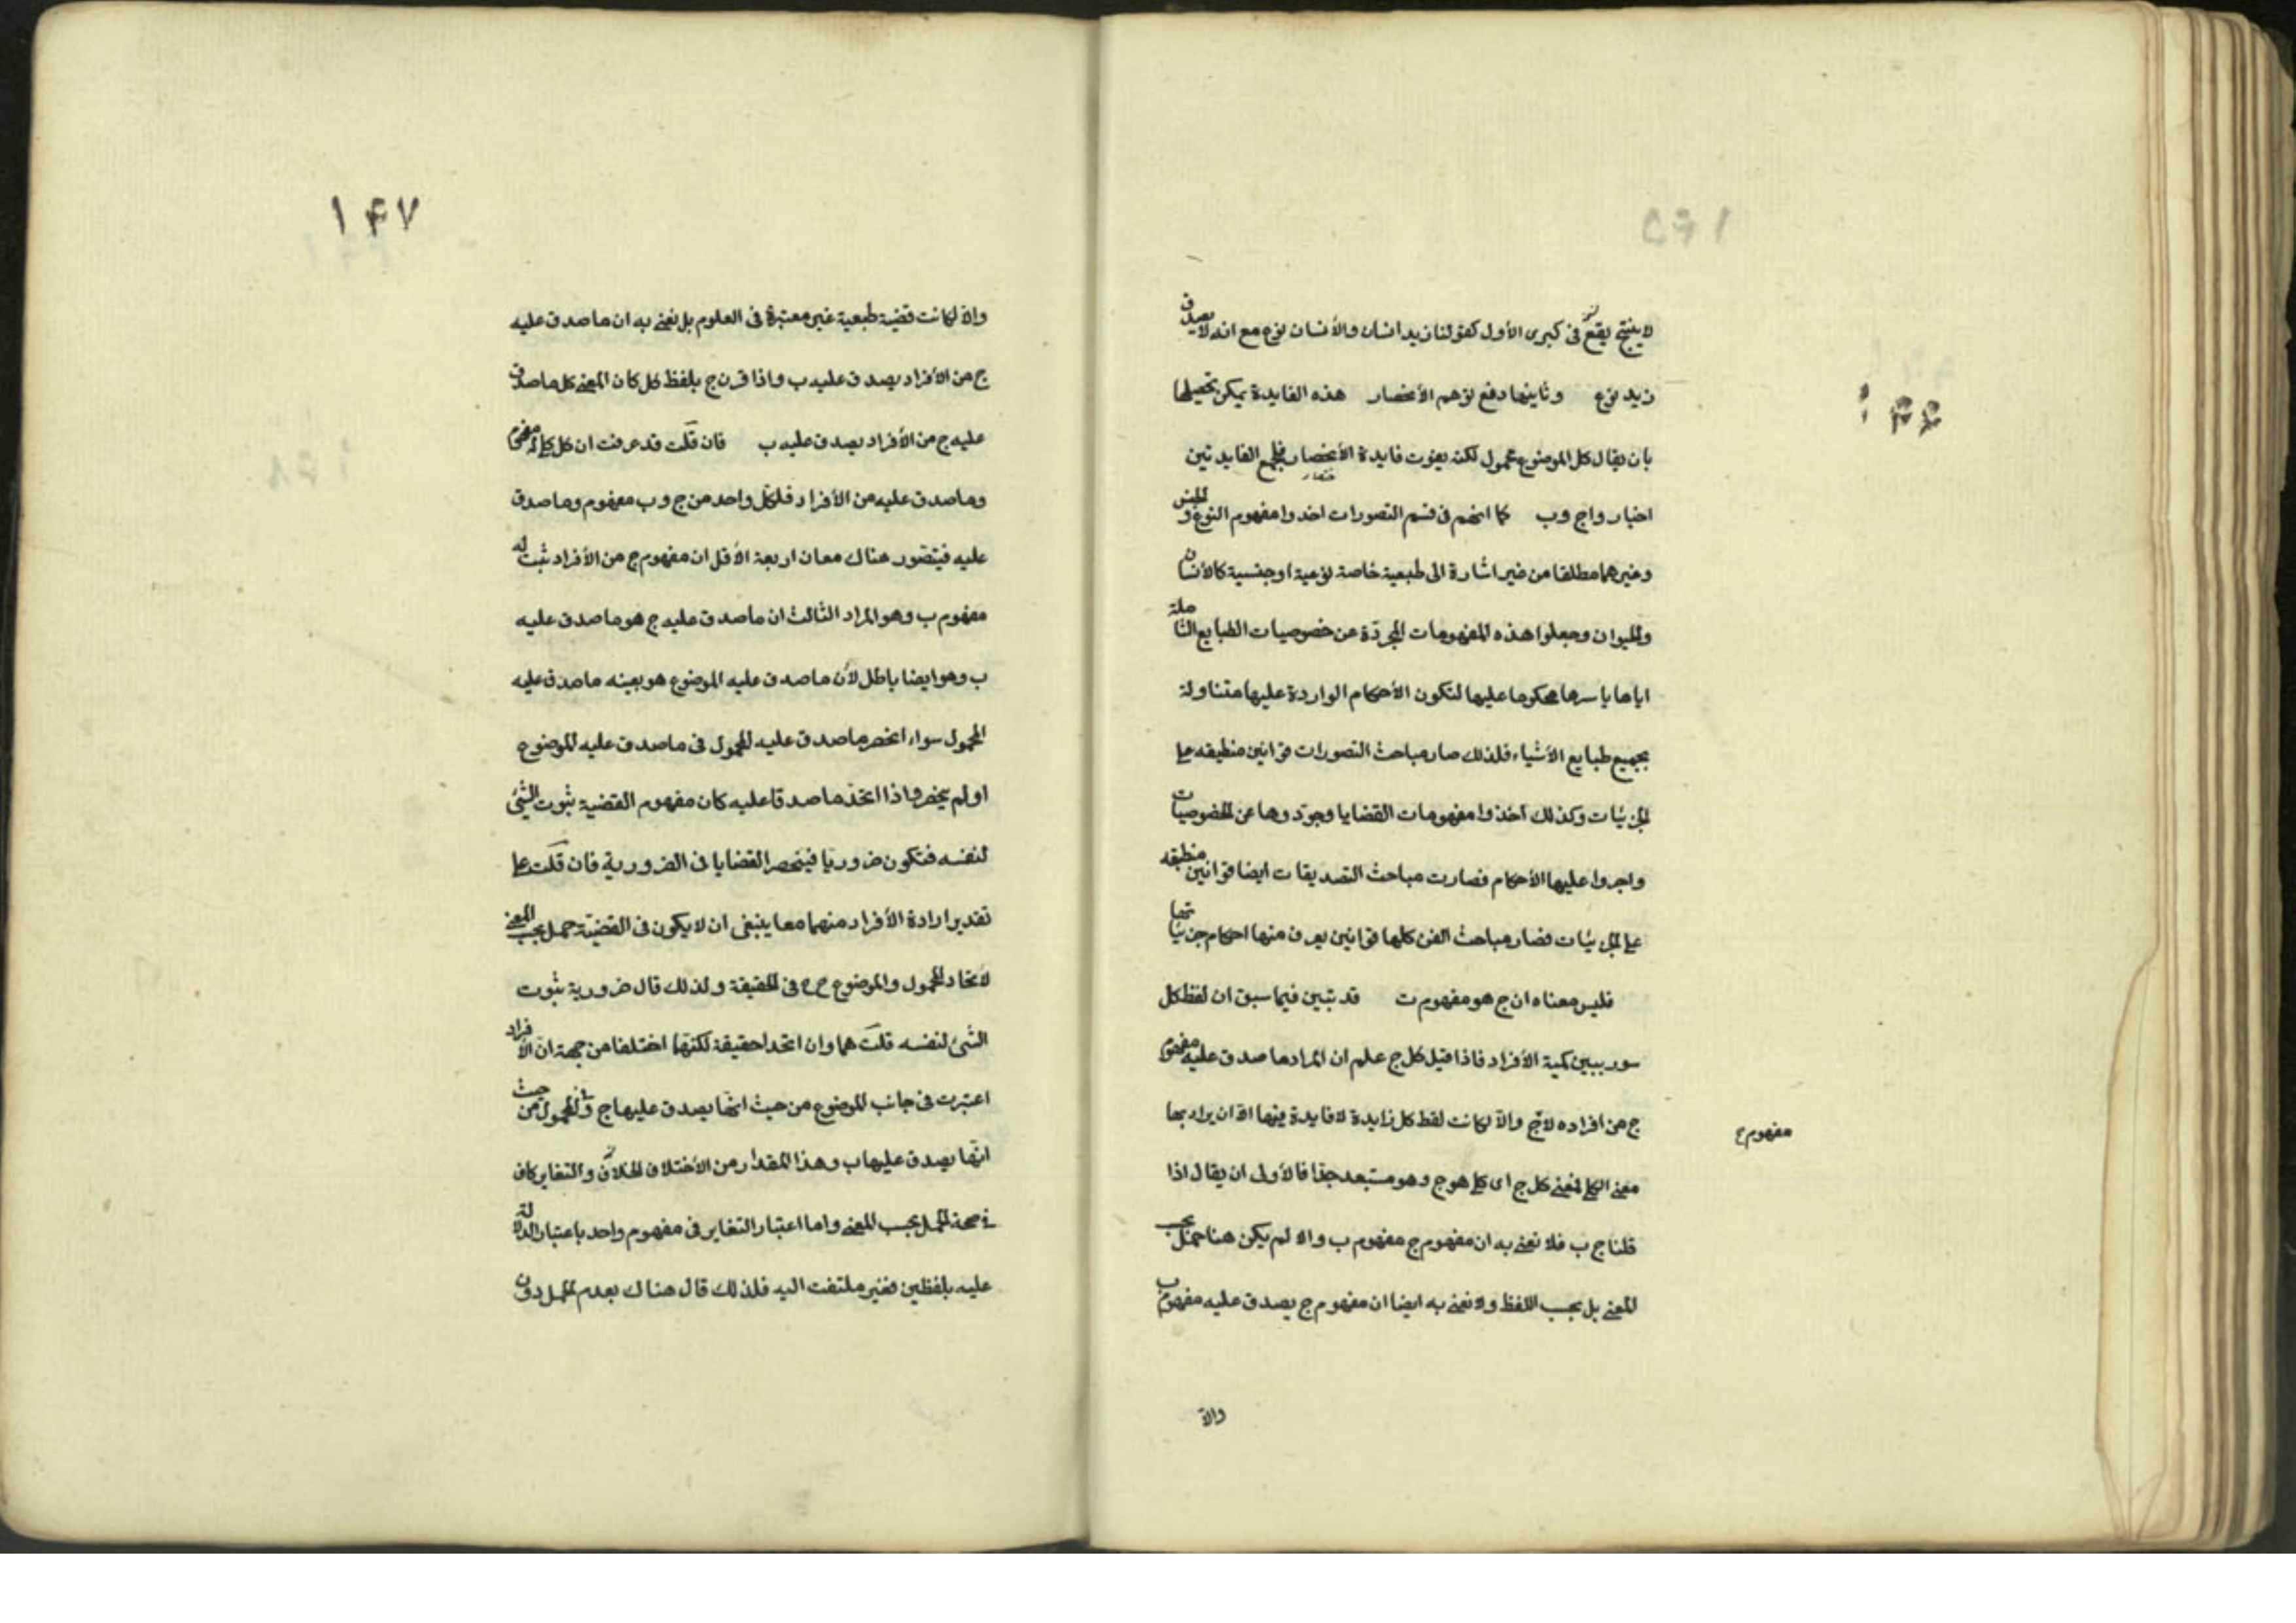 لا ينتج يقع فى كبرى الأول كقولنا زيد انسان والأنسان نوع مع انه لا يصدق
زيد نوع وثاينهما دفع توهم الأنحصار هذه الفايدة يمكن تحصيلها
بان يقال كل الموضوع محمول لكنه يفوت فايدة الأختصار فلجمع الفايدتين
اختاروا ج وب كما انهم فى قسم التصورات اخذوا مفهوم النوع والجنس
وغيرهما مطلقا من غير اشارة الى طبيعية خاصة نوعية او جنسية كالأنسان
والحيوان وجعلوا هذه المفهومات المجردة عن خصوصيات الطبايع الشاملة
اياها باسرها محكوما عليها لتكون الأحكام الواردة عليها متناولة
بجميع طبايع الأشياء فلذلك صار مباحث التصورات قوانين منطبقه على
الجزئيات وكذلك اخذوا مفهومات القضايا وجردوها عن الخصوصيات
واجروا عليها الأحكام فصارت مباحث التصديقات ايضا قوانين منطبقه
على الجزئيات فصار مباحث الفن كلها قوانين يعرف منها احكام جزئياتها
فليس معناه ان ج هو مفهوم ت قد تبين فيما سبق ان لفظ كل
سور يبين كمية الأفراد فاذا قيل كل ج علم ان المراد ما صدق عليه مفهوم
ج من افراده لا ج والا لكانت لفظ كل زايدة لا فايدة فيها الا ان يراد بها
مفهوم ج
معنى الكلى فمعنى كل ج اى كلى هو ج وهو مستبعد جدا فالأولى ان يقال اذا
قلنا ج ب فلا نعنى به ان مفهوم ج مفهوم ب والا لم يكن هنا حمل بحسب
المعنى بل بحسب اللفظ ولا نعنى به ايضا ان مفهوم ج يصدق عليه مفهوم ب
والا
۱۴۷
والا لكانت قضية طبعية غير معتبرة فى العلوم بل نعنى به ان ما صدق عليه
ج من الأفراد يصدق عليه ب واذا قرن ج بلفظ كل كان المعنى كل ما صدق
عليه ج من الأفراد يصدق عليه ب فان قلت قد عرفت ان كل كلى له مفهوم
وما صدق عليه من الأفراد فلكل واحد من ج وب مفهوم وما صدق
عليه فيتصور هناك معان اربعة الأول ان مفهوم ج من الأفراد ثبت له
مفهوم ب وهو المراد الثالث ان ما صدق عليه ج هو ما صدق عليه
ب وهو ايضا باطل لأن ما صدق عليه الموضوع هو بعينه ما صدق عليه
المحمول سواء انحصر ما صدق عليه المحمول فى ما صدق عليه الموضوع
او لم ينحصر واذا اتحد ما صدقا عليه كان مفهوم القضية ثبوت الشئ
لنفسه فتكون ضروريا فينحصر القضايا فى الضرورية فان قلت على
تقدير ارادة الأفراد منهما معا ينبغى ان لا يكون فى القضية حمل بحسب المعنى
لأتحاد المحمول والموضوع ح فى الحقيقة ولذلك قال ضرورية ثبوت
الشئ لنفسه قلت هما وان اتحدا حقيقة لكنهما اختلفا من جهة ان الأفراد
اعتبرت فى جانب الموضوع من حيث انها يصدق عليها ج وفى المحمول من حيث
انها يصدق عليها ب وهذا المقدار من الأختلاف والتغاير كاف
فى صحة الحمل بحسب المعنى واما اعتبار التغاير فى مفهوم واحد باعتبار الدلالة
عليه بلفظين فغير ملتفت اليه فلذلك قال هناك بعدم الحمل دون